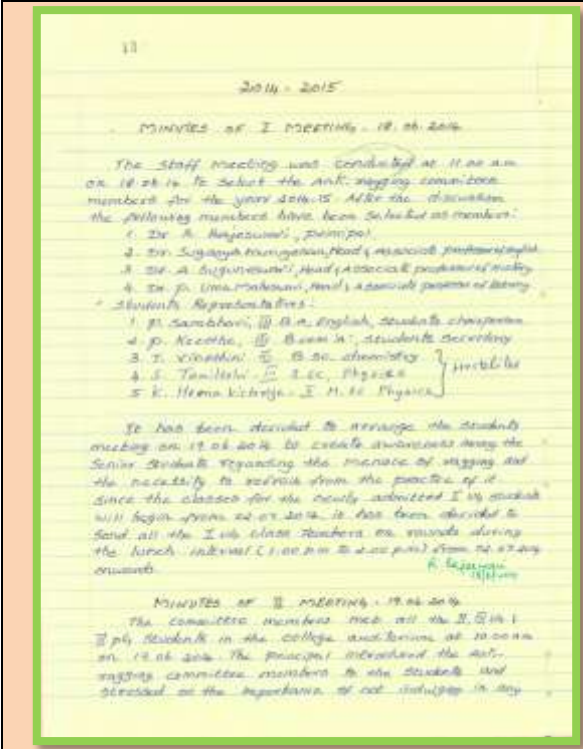 13
2014 - 2015
MINUTES OF I MEETING - 18.06.2014
The staff meeting was conducted at 11.00 a.m
on 18.06.14 to select the Anti ragging committee
members for the year 2014-15 After the discussion
the following members have been selected as members:
1. Dr R. Rajeswari, principal
2. Dr. Murugesan, Head & Associate professor of English
3. Dr. A Suguneswari, Head & Associate professor of History
4. Dr. P. Uma Maheswari, Head & Associate professor of
Students Representatives:
1. P. III B.A, English, Students chairperson
2. P. Keerthi, III B.com, Students Secretary
3. T. B.Sc. chemistry
4. S. Physics
5. K. II M.Sc Physics
It has been decided to arrange the students
meeting on 19.06.2014 to create awareness among the
Senior Students regarding the menace of ragging and
the necessity to refrain from the practice of it
since the classes for the newly admitted I UG students
will begin from 02.07.2014 it has been decided to
send all the I UG class teachers on rounds during
the lunch interval (1.00 p.m to 2.00 p.m) from 02.07.2014
onwards.
MINUTES OF II MEETING - 19.06.2014
The committee members met all the II, III UG &
II PG students in the college auditorium at 10.00 a.m
on 19.06.2014. The principal introduced the Anti-
ragging committee members to the students and
stressed on the importance of not indulging in any